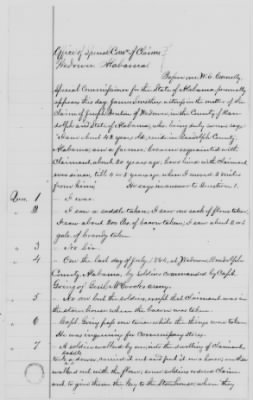 Office of Special Com. of Claims
Wedowee Alabama
Before me W. S. Connelly
Special Commissioner for the State of Alabama personally
appears this day James Smothers a witness in the matter of the
claim of Joseph of Wedowee in the County of Ran
dolph and State of Alabama, who being duly sworn says:
I am about 43 years old, reside in Randolph County
Alabama, am a farmer, became acquainted with
claimant about 20 years ago, have lived with claimant
ever since, till 2 or 3 years, when I moved 2 miles
from him; He says in answer to Question 1.
Ques. 1 I was.
2 I saw a saddle taken; I saw one sack of flour taken,
I saw about 200 lbs of bacon taken; I saw about 2 or
gals. of brandy taken
3 No Sir.
4 On the last day of July, 1864, at Wedowee, Randolph
County, Alabama, by soldiers commanded by Capt
of Genl army.
5 No one but the soldiers, except that claimant was in
the store house when the bacon was taken.
6 Capt. was one there while the things was taken
He was inquiring for Commissary stores.
7 A soldier walked by into the dwelling of claimant
saddle
it and put it on a horse, another
walked out with the flour, some soldiers ordered claim
ant to give them the key to the Storehouse, when they